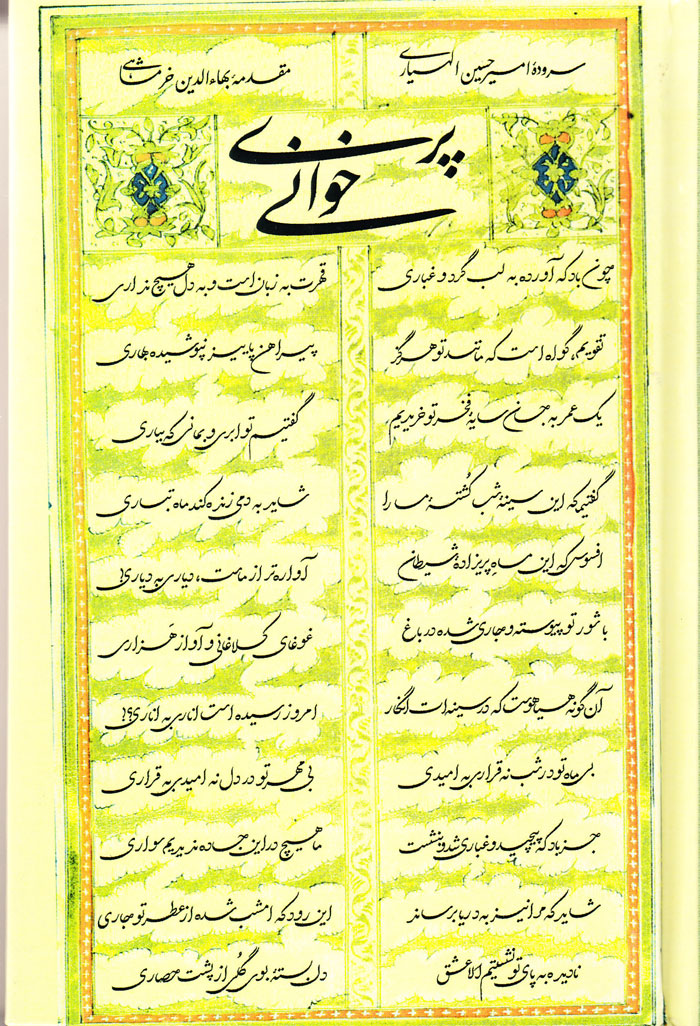 سرودهٔ امیرحسین الهیاری
مقدمهٔ بهاءالدین خرمشاهی
پری خوانی
چون باد که آورده به لب گرد و غباری
قهرت به زبان است و به دل هیچ نداری
تقویم، گواه است که مانند تو هرگز
پیراهن پاییز نپوشیده بهاری
یک عمر به جان سایهٔ فخر تو خریدیم
گفتیم تو ابری و بمانی که بباری
گفتیم که این سینهٔ شب کُشتهٔ ما را
شاید به دمی زنده کند ماه تتاری
افسوس که این ماهِ پریزادهٔ شیطان
آواره‌تر از ماست، دیاری به دیاری!
با شور تو پیوسته و جاری شده در باغ
غوغای کلاغانی و آواز هَزاری
آن گونه هیاهوست که در سینه‌ات انگار
امروز رسیده است اناری به اناری؟!
بی ماه تو در شب نه قراری به امیدی
بی مهر تو در دل نه امیدی به قراری
جز باد که پیچید و غباری شد و ننشست
ما هیچ در این جاده ندیدیم سواری
شاید که مرا نیز به دریا برساند
این رود که امشب شده از عطر تو جاری
نادیده به پای تو نشستیم الا عشق
دل بستهٔ بوی گلی از پشت حصاری